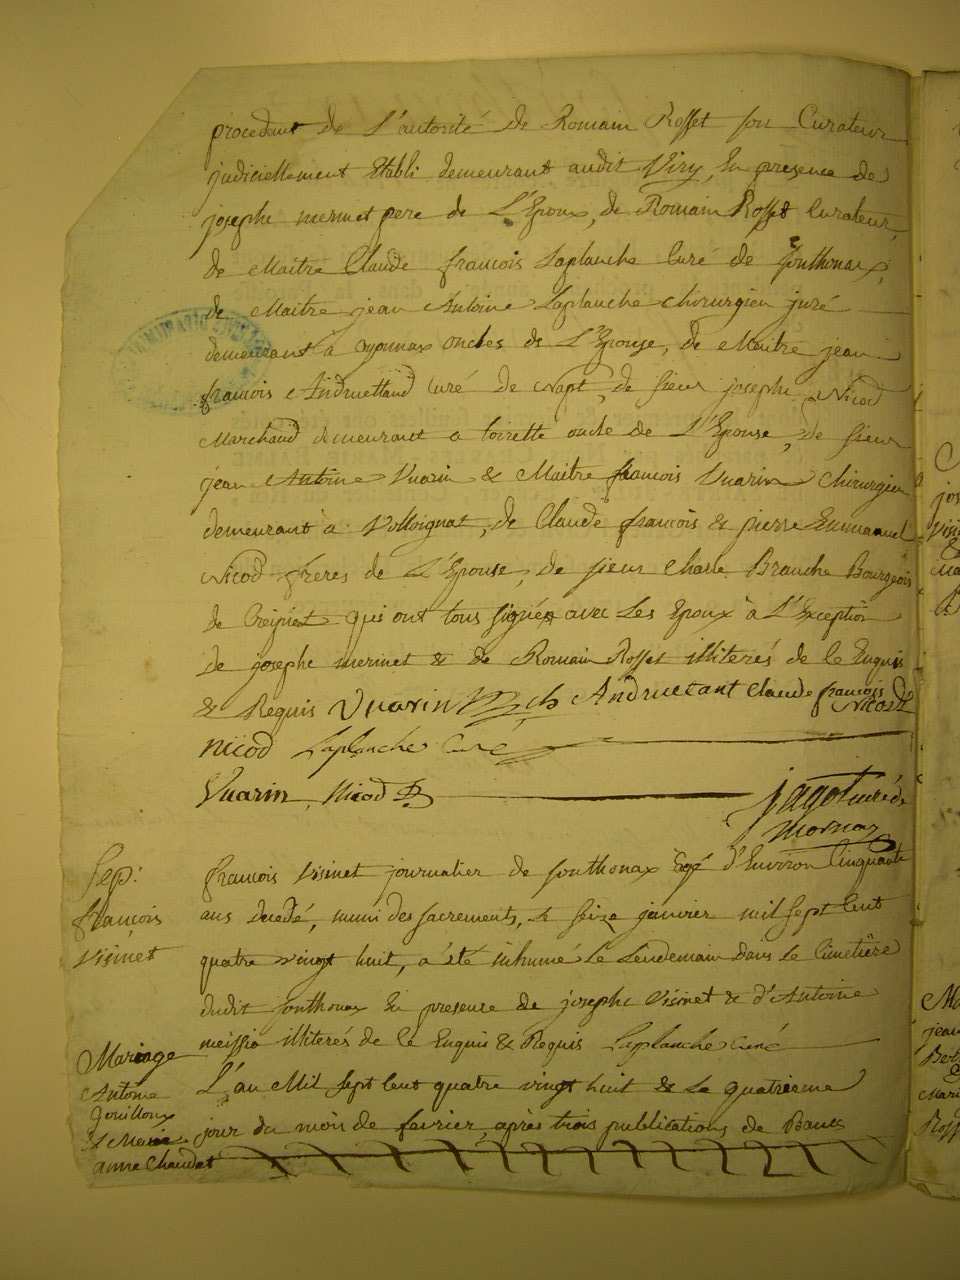 procedant de L'autorité de Romain Rosset son Curateur
judiciellement Etabli demeurant audit Viry, En presence de
josephe mermet pere de L'Epoux, de Romain Rosset Curateur,
de Maitre Claude françois Laplanche Curé de jonthonax,
de Maitre jean Antoine Laplanche chirurgien juré
demeurant à oyonnax oncles de L'Epouse, de Maitre jean
françois Andruettand Curé de Napt, de sieur josephe Nicod
Marchand demeurant a toirette oncle de L'Epouse, de sieur
jean Antoine Vuarin & Maitre françois Vuarin chirurgien
demeurant à Volloignat, de Claude françois & pierre Emmanuel
Nicod freres de L'Epouse, de sieur Charle Branche Bourgeois
de qui ont tous signés avec Les Epoux à L'Exception
de josephe mermet & de Romain Rosset illiterés de ce Enquis
& Requis Vuarin Andruetant Claude françois
Nicod
Nicod Laplanche Curé
Vuarin, Nicod jagot curé de
mornay
Sep:
françois
Visinet
françois Visinet journalier de jonthonax Egé d'Environ Cinquante
ans decedé, muni des sacrements, Le seize janvier mil sept Cent
quatre vingt huit, a été inhumé Le Lendemain dans Le Cimetière
dudit jonthonax En presence de josephe Visinet & d'Antoine
meissia illiterés de ce Enquis & Requis Laplanche curé
Mariage
Antoine
Gouilloux
& Marie
anne Chaudet
L'an Mil sept Cent quatre vingt huit & Le quatrieme
jour du mois de favrier, après trois publications de Bancs